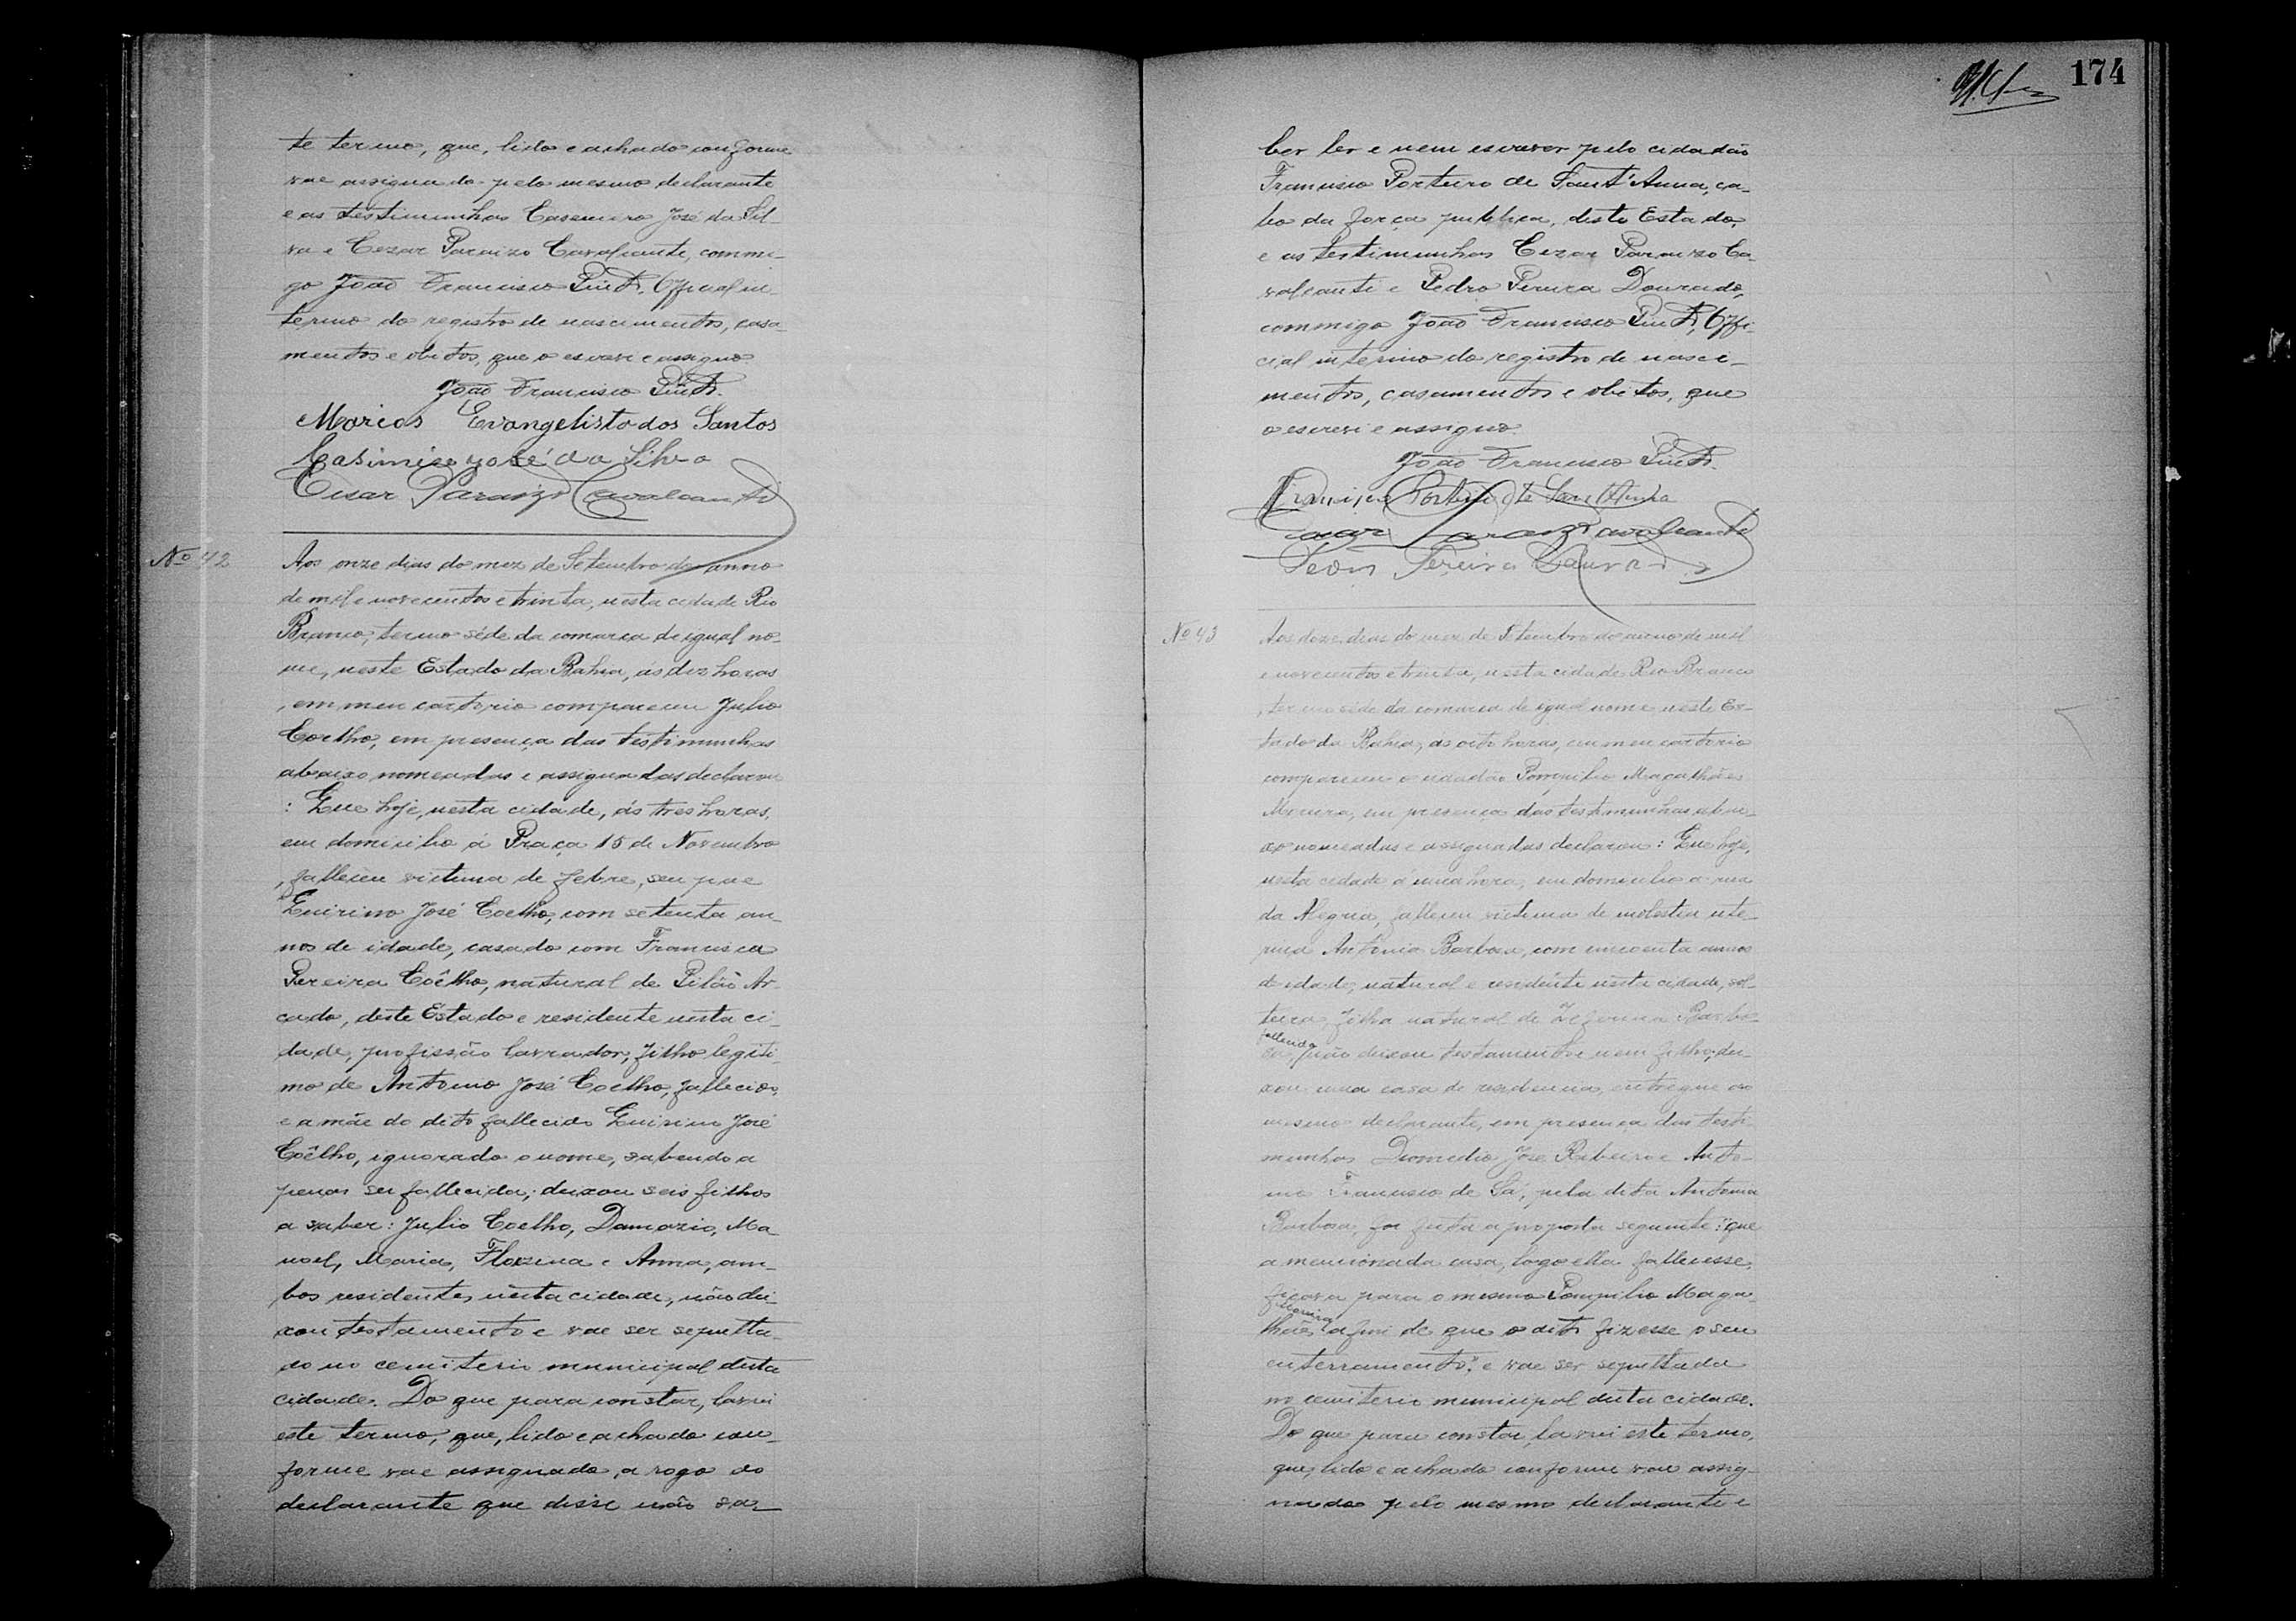 te termo, que, lido e achado conforme
vae assignado pelo mesmo declarante
e as testimunhas Casemiro José da Sil-
va e Cezar Paraizo Cavalcante, commi-
go João Francisco Pinto, Official in-
terino do registro de nascimentos, casa-
mentos e obitos, que o escrevi e assigno
João Francisco Pinto.
Marcos Evangelista dos Santos
Casimiro José da Silva
Cesar Paraizo Cavalcanti
Nº 42
Aos onze dias do mez de Setembro do anno
de mil e novecentos e trinta, nesta cidade Rio
Branco, termo séde da comarca de igual no-
me, neste Estado da Bahia, ás dez horas
, em meu cartorio compareceu Julio
Coelho, em presença das testimunhas
abaixo nomeadas e assignadas declarou
: Que hoje, nesta cidade, ás tres horas,
em domicilio á Praça 15 de Novembro
, falleceu victima de febre, seu pae
Quirino José Coelho, com setenta an-
nos de idade, casado com Francisca
Pereira Coêlho, natural de Pilão Ar-
cado, deste Estado e residente nesta ci-
dade, profissão lavrador, filho legiti-
mo de Antonio José Coelho, fallecido,
e a mãe do dito fallecido Quirino José
Coêlho, ignorado o nome, sabendo a
penas ser fallecida; deixou seis filhos
a saber: Julio Coelho, Damazio, Ma
noel, Maria, Florzina e Anna, am-
bos residentes nesta cidade, não dei-
xou testamento e vae ser sepulta-
do no cemiterio municipal desta
cidade. Do que para constar, lavrei
este termo, que, lido e achado con-
forme vae assignado, a rogo do
declarante que disse não sa-
174
ber ler e nem escrever pelo cidadão
Francisco Porturo de Sant'Anna, ca-
bo da força publica, deste Estado,
e as testimunhas Cezar Paraizo Ca-
valcante e Pedro Pereira Dourado,
commigo João Francisco Pinto, Offi-
cial interino do registro de nasci-
mentos, casamentos e obitos, que
o escrevi e assigno.
João Francisco Pinto.
Francisco de Sant'Anna
Cesar Paraizo Cavalcanti
Pereira Dourado
Nº 43
Aos doze dias do mez de Setembro do anno de mil
e novecentos e trinta, nesta cidade Rio Branco
, termo séde da comarca de igual nome, neste Es-
tado da Bahia, ás oito horas, em meu cartorio
compareceu o cidadão Pompilio Magalhães
Moreira, em presença das testimunhas abai-
xo nomeadas e assignadas, declarou: Que hoje,
nesta cidade á uma hora, em domicilio a rua
da Alegria, falleceu victima de molestia ute-
rina Antonia Barbosa, com cincoenta annos
de idade, natural e residente nesta cidade, sol-
teira, filha natural de Zeferina Barbo-
fallecida
sa, não deixou testamento e nem filho; dei-
xou uma casa de residencia, entregue ao
mesmo declarante, em presença das testi-
munhas Diomedio José Ribeiro e Anto-
nio Francisco de Sá, pela dita Antonia
Barbosa, foi feita a proposta seguinte: "que
a mencionada casa, logo ella fallecesse,
ficava para o mesmo Pompilio Maga-
Moreira
lhães, afim de que o dito fizesse o seu
enterramento." e vae ser sepultada
no cemiterio municipal desta cidade.
Do que para constar, lavrei este termo,
que, lido e achado conforme vae assig-
nado pelo mesmo declarante e